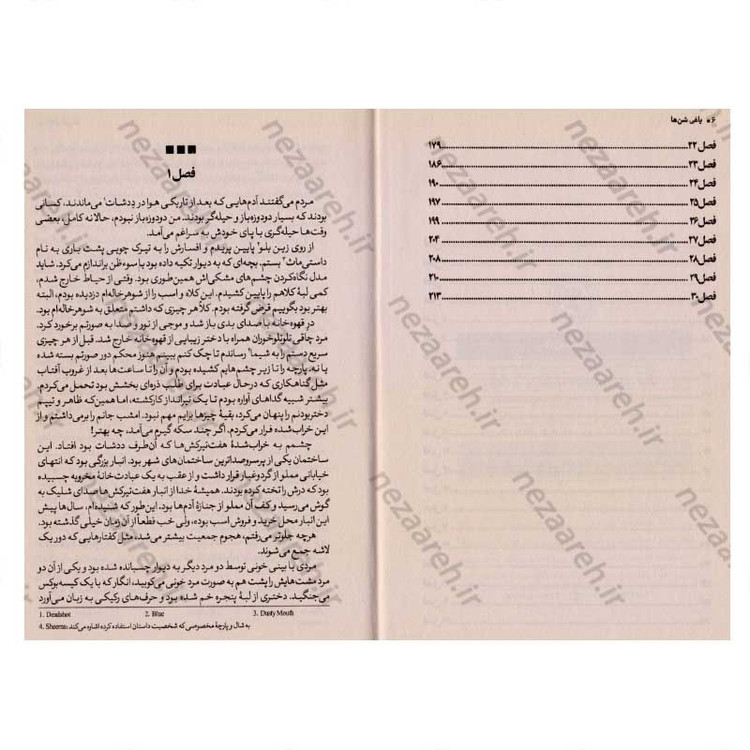 ۶ ■ یاغی شن‌ها
فصل ۲۲ ........ ۱۷۹
فصل ۲۳ ........ ۱۸۶
فصل ۲۴ ........ ۱۹۰
فصل ۲۵ ........ ۱۹۷
فصل ۲۶ ........ ۱۹۹
فصل ۲۷ ........ ۲۰۴
فصل ۲۸ ........ ۲۰۸
فصل ۲۹ ........ ۲۱۰
فصل ۳۰ ........ ۲۱۳
■ ■ ■
فصل ۱
مردم می‌گفتند آدم‌هایی که بعد از تاریکی هوا در ددشات¹ می‌ماندند، کسانی
بودند که بسیار دودوزه‌باز و حیله‌گر بودند. من دودوزه‌باز نبودم، حالا نه کامل، بعضی
وقت‌ها حیله‌گری با پای خودش به سراغم می‌آمد.
از روی زین بلو² پایین پریدم و افسارش را به تیرک چوبی پشت باری به نام
داستی‌ماث³ بستم. بچه‌ای که به دیوار تکیه داده بود با سوءظن براندازم می‌کرد. شاید
مدل نگاه‌کردن چشم‌های مشکی‌اش همین‌طوری بود. وقتی از حیاط خارج شدم،
کمی لبهٔ کلاهم را پایین کشیدم. این کلاه و اسب را از شوهرخاله‌ام دزدیده بودم، البته
بهتر بود بگوییم قرض گرفته بودم. کلاً هر چیزی که داشتم متعلق به شوهرخاله‌ام بود.
در قهوه‌خانه با صدای بدی باز شد و موجی از نور و صدا به صورتم برخورد کرد.
مرد چاقی تلوتلوخوران همراه با دختر زیبایی از قهوه‌خانه خارج شد. قبل از هر چیزی
سریع دستم را به شیما⁴ رساندم تا چک کنم ببینم هنوز محکم دور صورتم بسته شده
یا نه. پارچه را تا زیر چشم‌هایم کشیده بودم و آن را تا ساعت‌ها بعد از غروب آفتاب
مثل گناهکاری که درحال عبادت برای طلب ذره‌ای بخشش بود تحمل می‌کردم.
بیشتر شبیه گداهای آواره بودم تا یک تیرانداز کارکشته، اما همین‌که ظاهر و تیپم
دختربودنم را پنهان می‌کرد، بقیهٔ چیزها برایم مهم نبود. امشب جانم را برمی‌داشتم و از
این خراب‌شده فرار می‌کردم. اگر چند سکه گیرم می‌آمد، چه بهتر!
چشمم به خراب‌شدهٔ هفت‌تیرکش‌ها که آن‌طرف ددشات بود افتاد. این
ساختمان یکی از پرسروصداترین ساختمان‌های شهر بود. انبار بزرگی بود که انتهای
خیابانی مملو از گردوغبار قرار داشت و از عقب به یک عبادت‌خانهٔ مخروبه چسبیده
بود که درش را تخته کرده بودند. همیشهٔ خدا از انبار هفت‌تیرکش‌ها صدای شلیک به
گوش می‌رسید و کف آن مملو از جنازهٔ آدم‌ها بود. این‌طور که شنیده‌ام، سال‌ها پیش
این انبار محل خرید و فروش اسب بوده، ولی خب قطعاً از آن زمان خیلی گذشته بود.
هرچه جلوتر می‌رفتم، هجوم جمعیت بیشتر می‌شد، مثل کفتارهایی که دور یک
لاشه جمع می‌شوند.
مردی با بینی خونی توسط دو مرد دیگر به دیوار چسبانده شده بود و یکی از آن دو
مرد مشت‌هایش را پشت هم به صورت مرد خونی می‌کوبید، انگار که با یک کیسه‌بوکس
می‌جنگید. دختری از لبهٔ پنجره خم شده بود و حرف‌های رکیکی به زبان می‌آورد
1. Deadshot 2. Blue 3. Dusty Mouth
4. Sheema: به شال و پارچهٔ مخصوصی که شخصیت داستان استفاده کرده اشاره می‌کند
nezaareh.ir
nezaareh.ir
nezaareh.ir
nezaareh.ir
nezaareh.ir
nezaareh.ir
nezaareh.ir
nezaareh.ir